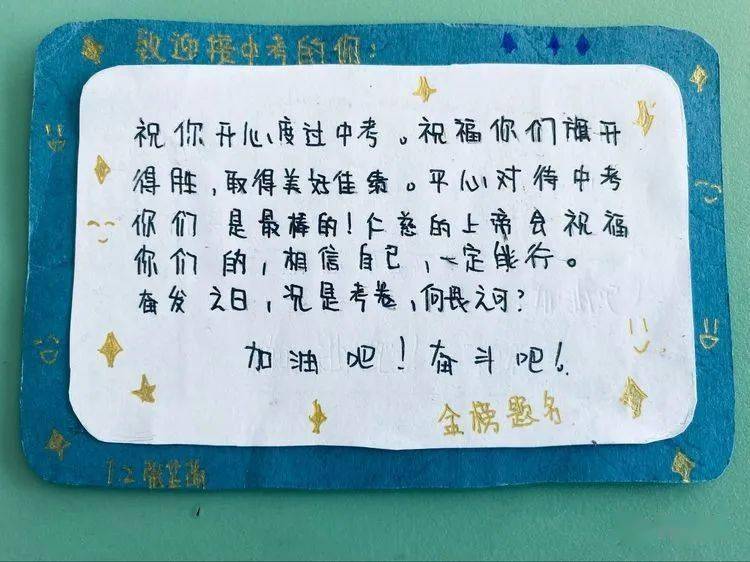 致迎接中考的你：
祝你开心度过中考。祝福你们旗开
得胜，取得美好佳绩。平心对待中考
你们是最棒的！仁慈的上帝会祝福
你们的，相信自己，一定能行。
奋发之日，况是考卷，何畏之有？
加油吧！奋斗吧！
金榜题名
7.2